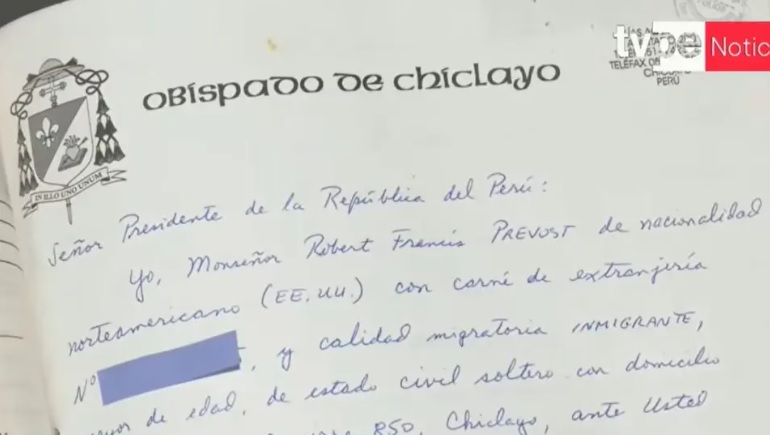 tvpe Notic
OBISPADO DE CHICLAYO
TELEFAX
PERÚ
IN ILLO UNO UNUM
Señor Presidente de la República del Perú:
Yo, Monseñor Robert Francis PREVOST de nacionalidad
norteamericano (EE.UU.) con carné de extranjería
Nº , y calidad migratoria INMIGRANTE,
de edad, de estado civil soltero con domicilio
850, Chiclayo, ante Usted